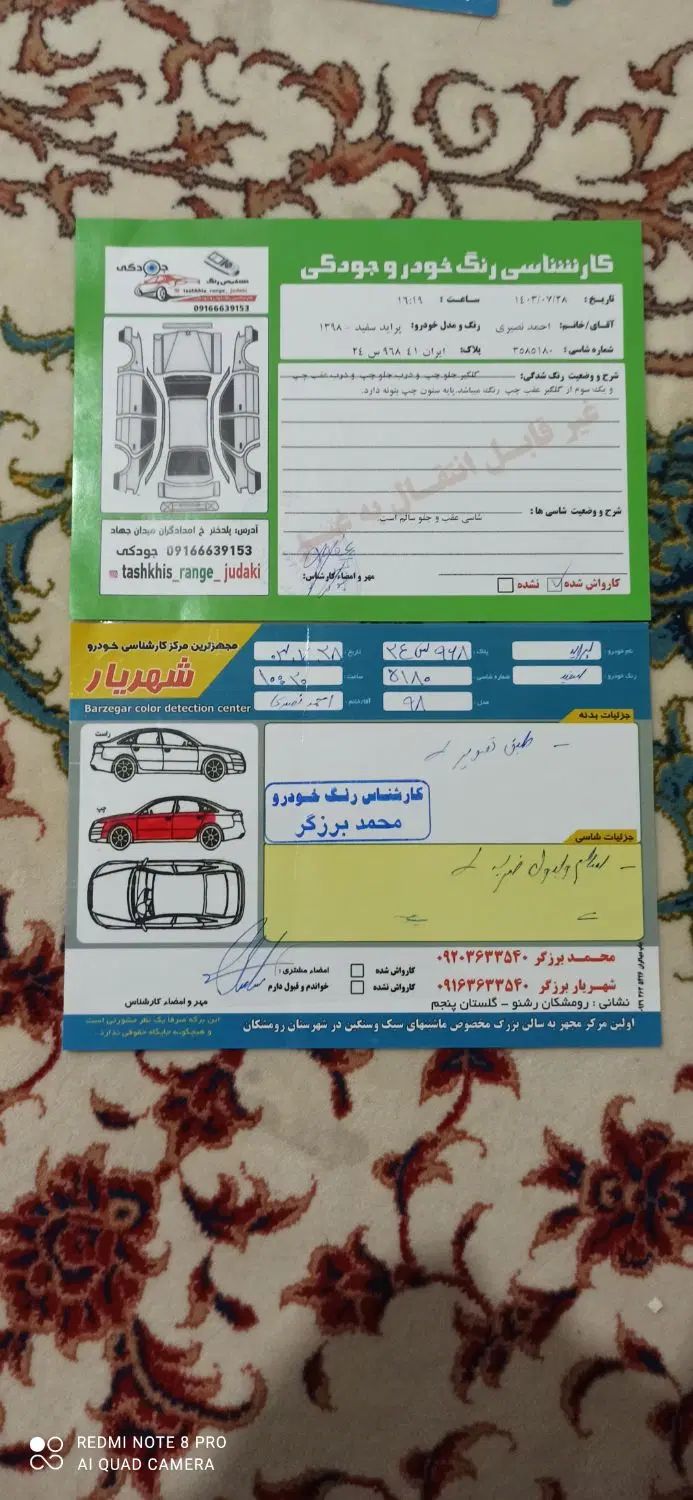 کارشناسی رنگ خودرو جودکی
جودکی
تشخیص رنگ
tashkhis_range_judaki
09166639153
تاریخ : ۱۴۰۳/۰۷/۲۸ ساعت : ۱۶:۱۹
آقای/خانم: احمد نصیری رنگ و مدل خودرو: پراید سفید - ۱۳۹۸
شماره شاسی : ۳۵۸۵۱۸۰ پلاک: ایران ۴۱ ۹۶۸ س ۲۴
شرح و وضعیت رنگ شدگی: گلگیر جلو چپ و درب جلو چپ و درب عقب چپ
و یک سوم از گلگیر عقب چپ رنگ میباشد.پایه ستون چپ بتونه دارد.
غیر قابل انتقال به غیر
شرح و وضعیت شاسی ها : شاسی عقب و جلو سالم است.
مهر و امضاء کارشناس:
کارواش شده نشده
آدرس: پلدختر خ امدادگران میدان جهاد
09166639153 جودکی
tashkhis_range_judaki
مجهزترین مرکز کارشناسی خودرو
شهریار
Barzegar color detection center
نام خودرو : پراید پلاک : ۹۶۸ س ۲۴ تاریخ : ۰۳،۷،۲۸
رنگ خودرو : سفید شماره شاسی : ۵۱۸۰ ساعت :
مدل : ۹۸ آقا/خانم : احمد نصیری
جزئیات بدنه
راست
چپ
طبق تصویر
کارشناس رنگ خودرو
محمد برزگر
جزئیات شاسی
سالم و بدون ضربه
محمـد برزگر ۰۹۲۰۳۶۳۳۵۴۰
شهـریار برزگر ۰۹۱۶۳۶۳۳۵۴۰
کارواش شده
کارواش نشده
امضاء مشتری :
خواندم و قبول دارم
مهر و امضاء کارشناس
نشانی : رومشکان رشنو - گلستان پنجم
اولین مرکز مجهز به سالن بزرگ مخصوص ماشینهای سبک و سنگین در شهرستان رومشکان
این برگه صرفا یک نظر مشورتی است
و هیچگونه جایگاه حقوقی ندارد.
REDMI NOTE 8 PRO
AI QUAD CAMERA